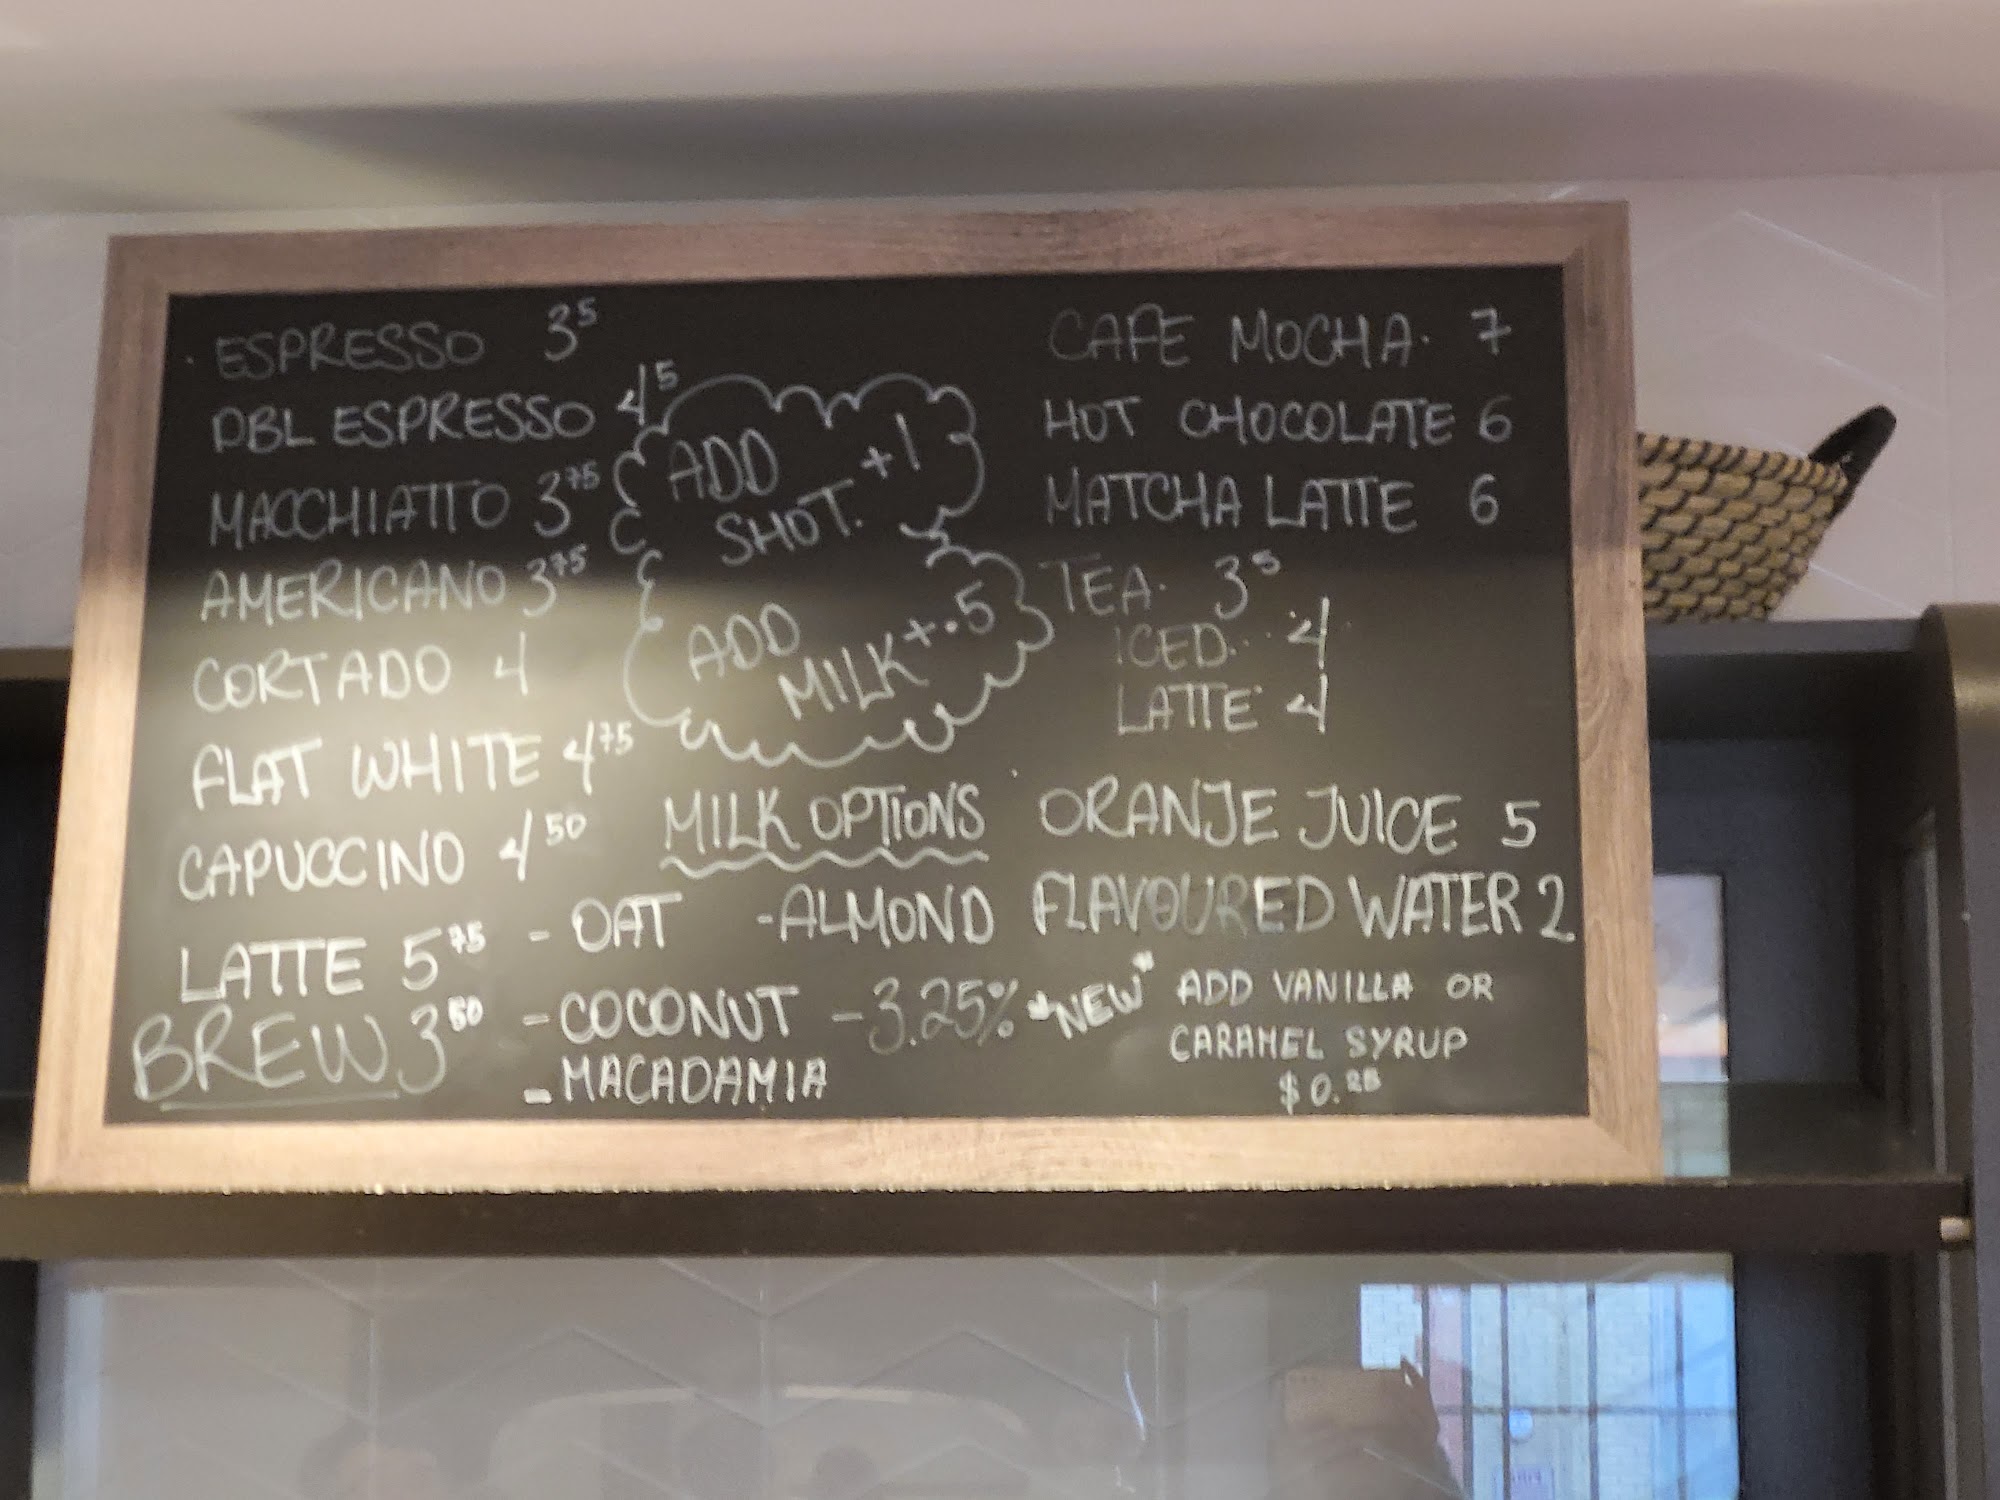 ESPRESSO 3⁵
DBL ESPRESSO 4⁵
MACCHIATTO 3⁷⁵
AMERICANO 3⁷⁵
CORTADO 4
FLAT WHITE 4⁷⁵
CAPUCCINO 4⁵⁰
LATTE 5⁷⁵
BREW 3⁵⁰
ADD
SHOT. +1
ADD
MILK +.5
MILK OPTIONS
- OAT - ALMOND
- COCONUT - 3.25%
- MACADAMIA
CAFE MOCHA. 7
HOT CHOCOLATE 6
MATCHA LATTE 6
TEA. 3⁵
ICED.. 4
LATTE 4
ORANJE JUICE 5
FLAVOURED WATER 2
*NEW* ADD VANILLA OR
CARAMEL SYRUP